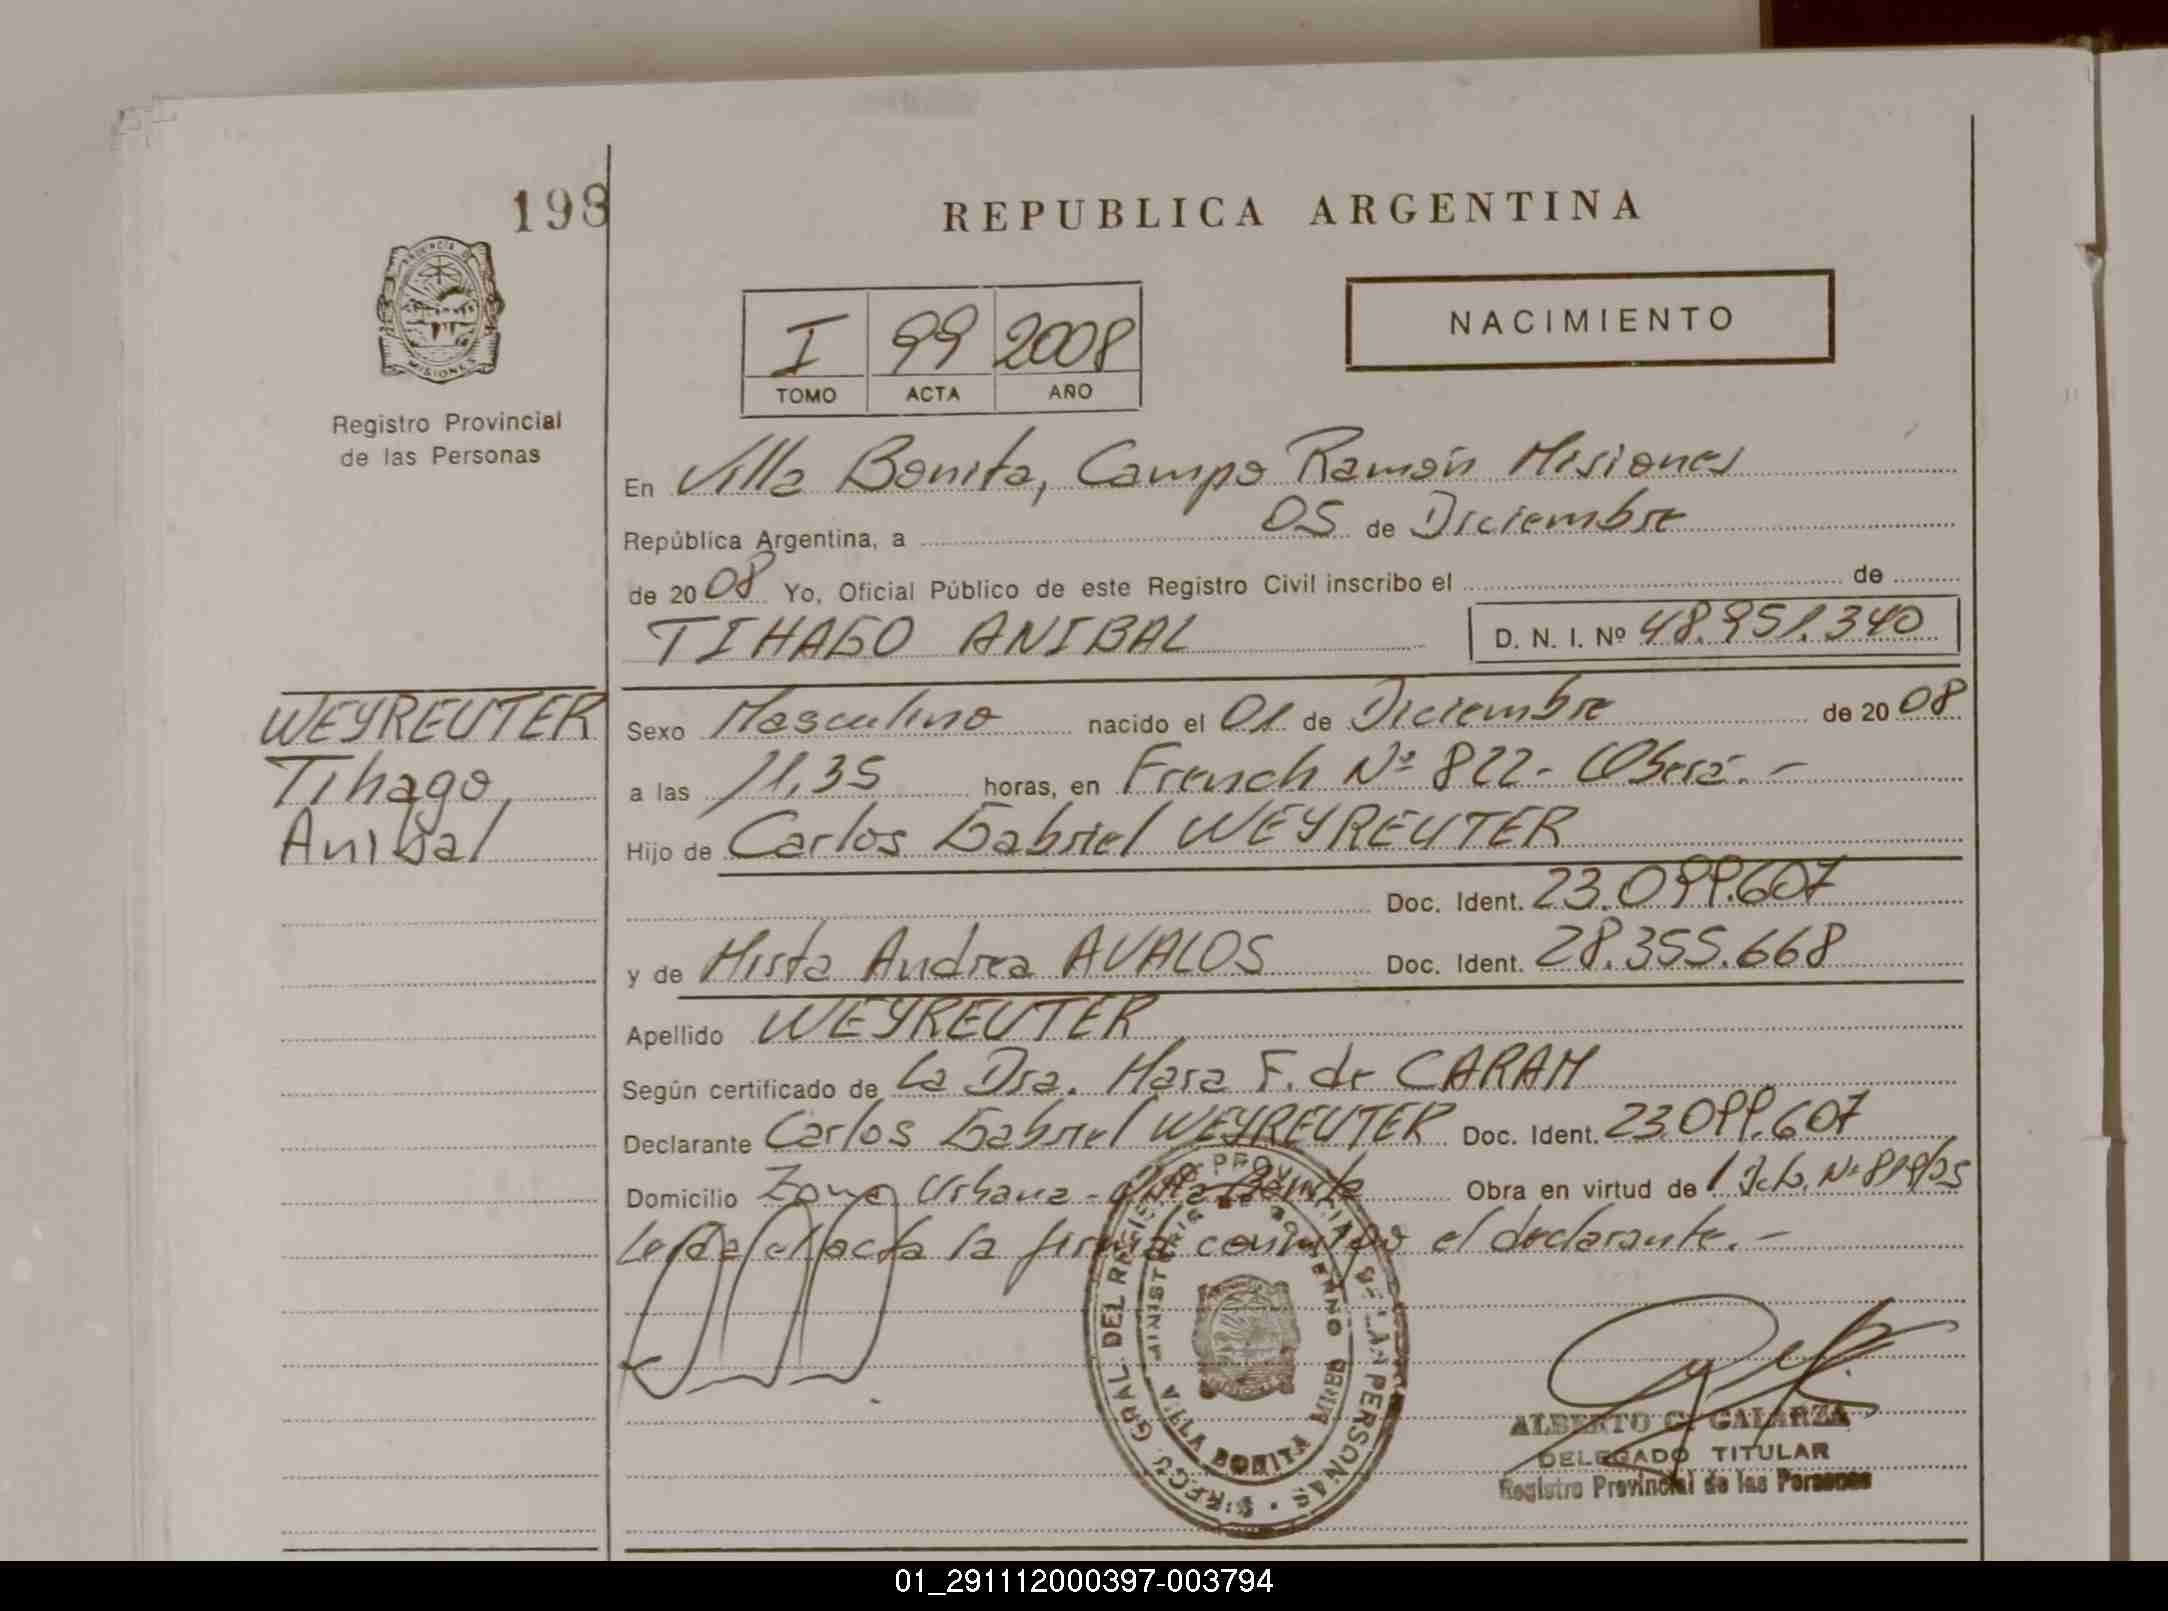 198
REPUBLICA ARGENTINA
PROVINCIA DE MISIONES
I 99 2008
TOMO ACTA AÑO
NACIMIENTO
Registro Provincial
de las Personas
En Villa Bonita, Campo Ramón Misiones
República Argentina, a 05 de Diciembre
de 2008 Yo, Oficial Público de este Registro Civil inscribo el de
TIHAGO ANIBAL D. N. I. Nº 48.951.340
WEYREUTER
Tihago
Anibal
Sexo Masculino nacido el 01 de Diciembre de 2008
a las 11,35 horas, en French Nº 822- Oberá.-
Hijo de Carlos Gabriel WEYREUTER
Doc. Ident. 23.099.607
y de Mirta Andrea AVALOS Doc. Ident. 28.355.668
Apellido WEYREUTER
Según certificado de La Dra. Mara F. de CARAM
Declarante Carlos Gabriel WEYREUTER Doc. Ident. 23.099.607
Domicilio Zona Urbana - Villa Bonita Obra en virtud de Nº 819/05
Leída el acta la firma conmigo el declarante.-
DIREC. GRAL. DEL REGISTRO PROVINCIAL DE LAS PERSONAS
MINISTERIO DE GOBIERNO
VILLA BONITA
ALBERTO C. GALARZA
DELEGADO TITULAR
Registro Provincial de las Personas
01_291112000397-003794